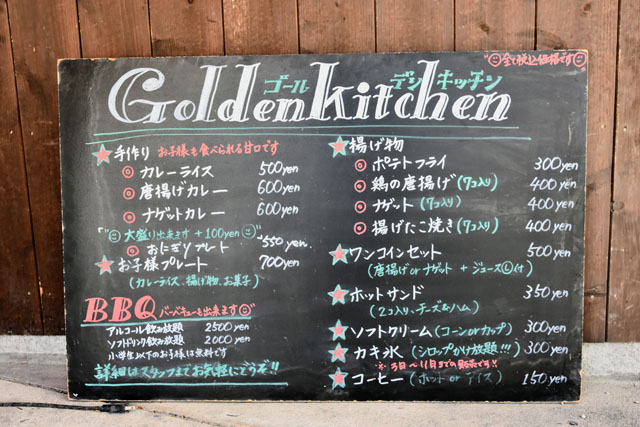 ☺全て税込価格です☺
Goldenkitchen
ゴールデンキッチン
★手作り お子様も食べられる甘口です
◎カレーライス 500yen
◎唐揚げカレー 600yen
◎ナゲットカレー 600yen
"☺大盛り出来ます+100yen☺"
◎おにぎりプレート 550yen
★お子様プレート 700yen
(カレーライス、揚げ物、お菓子)
BBQ バーベキューも出来ます☺
アルコール飲み放題 2500yen
ソフトドリンク飲み放題 2000yen
小学生以下のお子様は無料です
詳細はスタッフまでお気軽にどうぞ!!
★揚げ物
◎ポテトフライ 300yen
◎鶏の唐揚げ(7コ入り) 400yen
◎ナゲット(7コ入り) 400yen
◎揚げたこ焼き(7コ入り) 400yen
★ワンコインセット 500yen
(唐揚げorナゲット+ジュースⓁ付)
★ホットサンド 350yen
(2コ入り、チーズ&ハム)
★ソフトクリーム(コーンorカップ) 300yen
★カキ氷(シロップかけ放題!!!) 300yen
※5月〜11月までの販売です!!
★コーヒー(ホットorアイス) 150yen